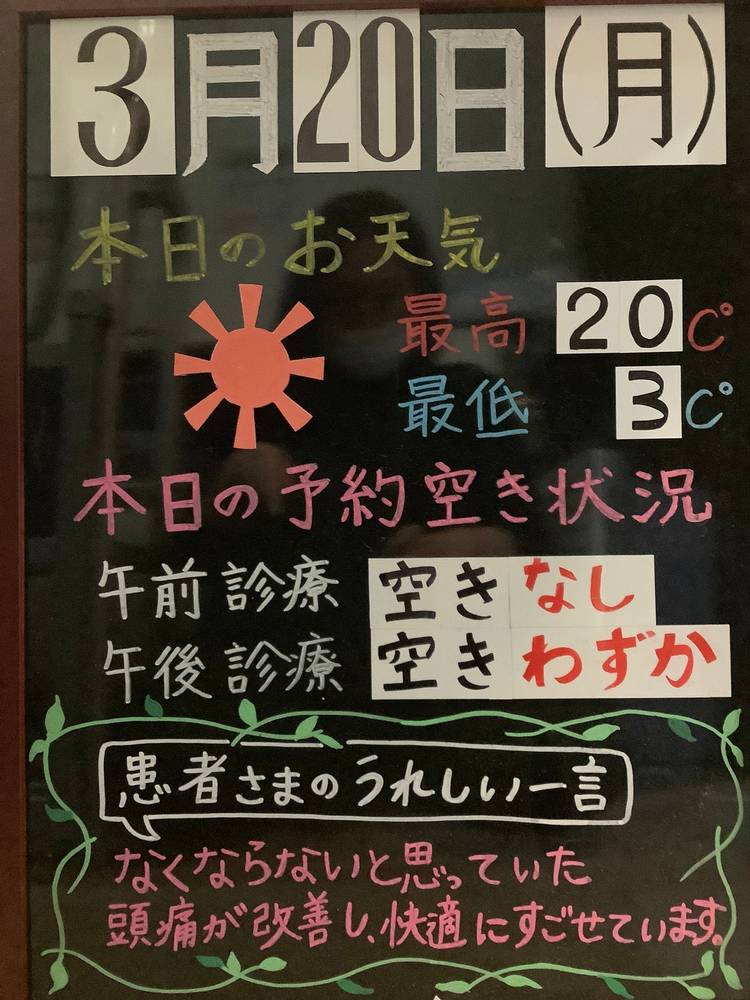 3月20日(月)
本日のお天気
最高 20C°
最低 3C°
本日の予約空き状況
午前診療 空きなし
午後診療 空きわずか
患者さまのうれしい一言
なくならないと思っていた
頭痛が改善し、快適にすごせています。